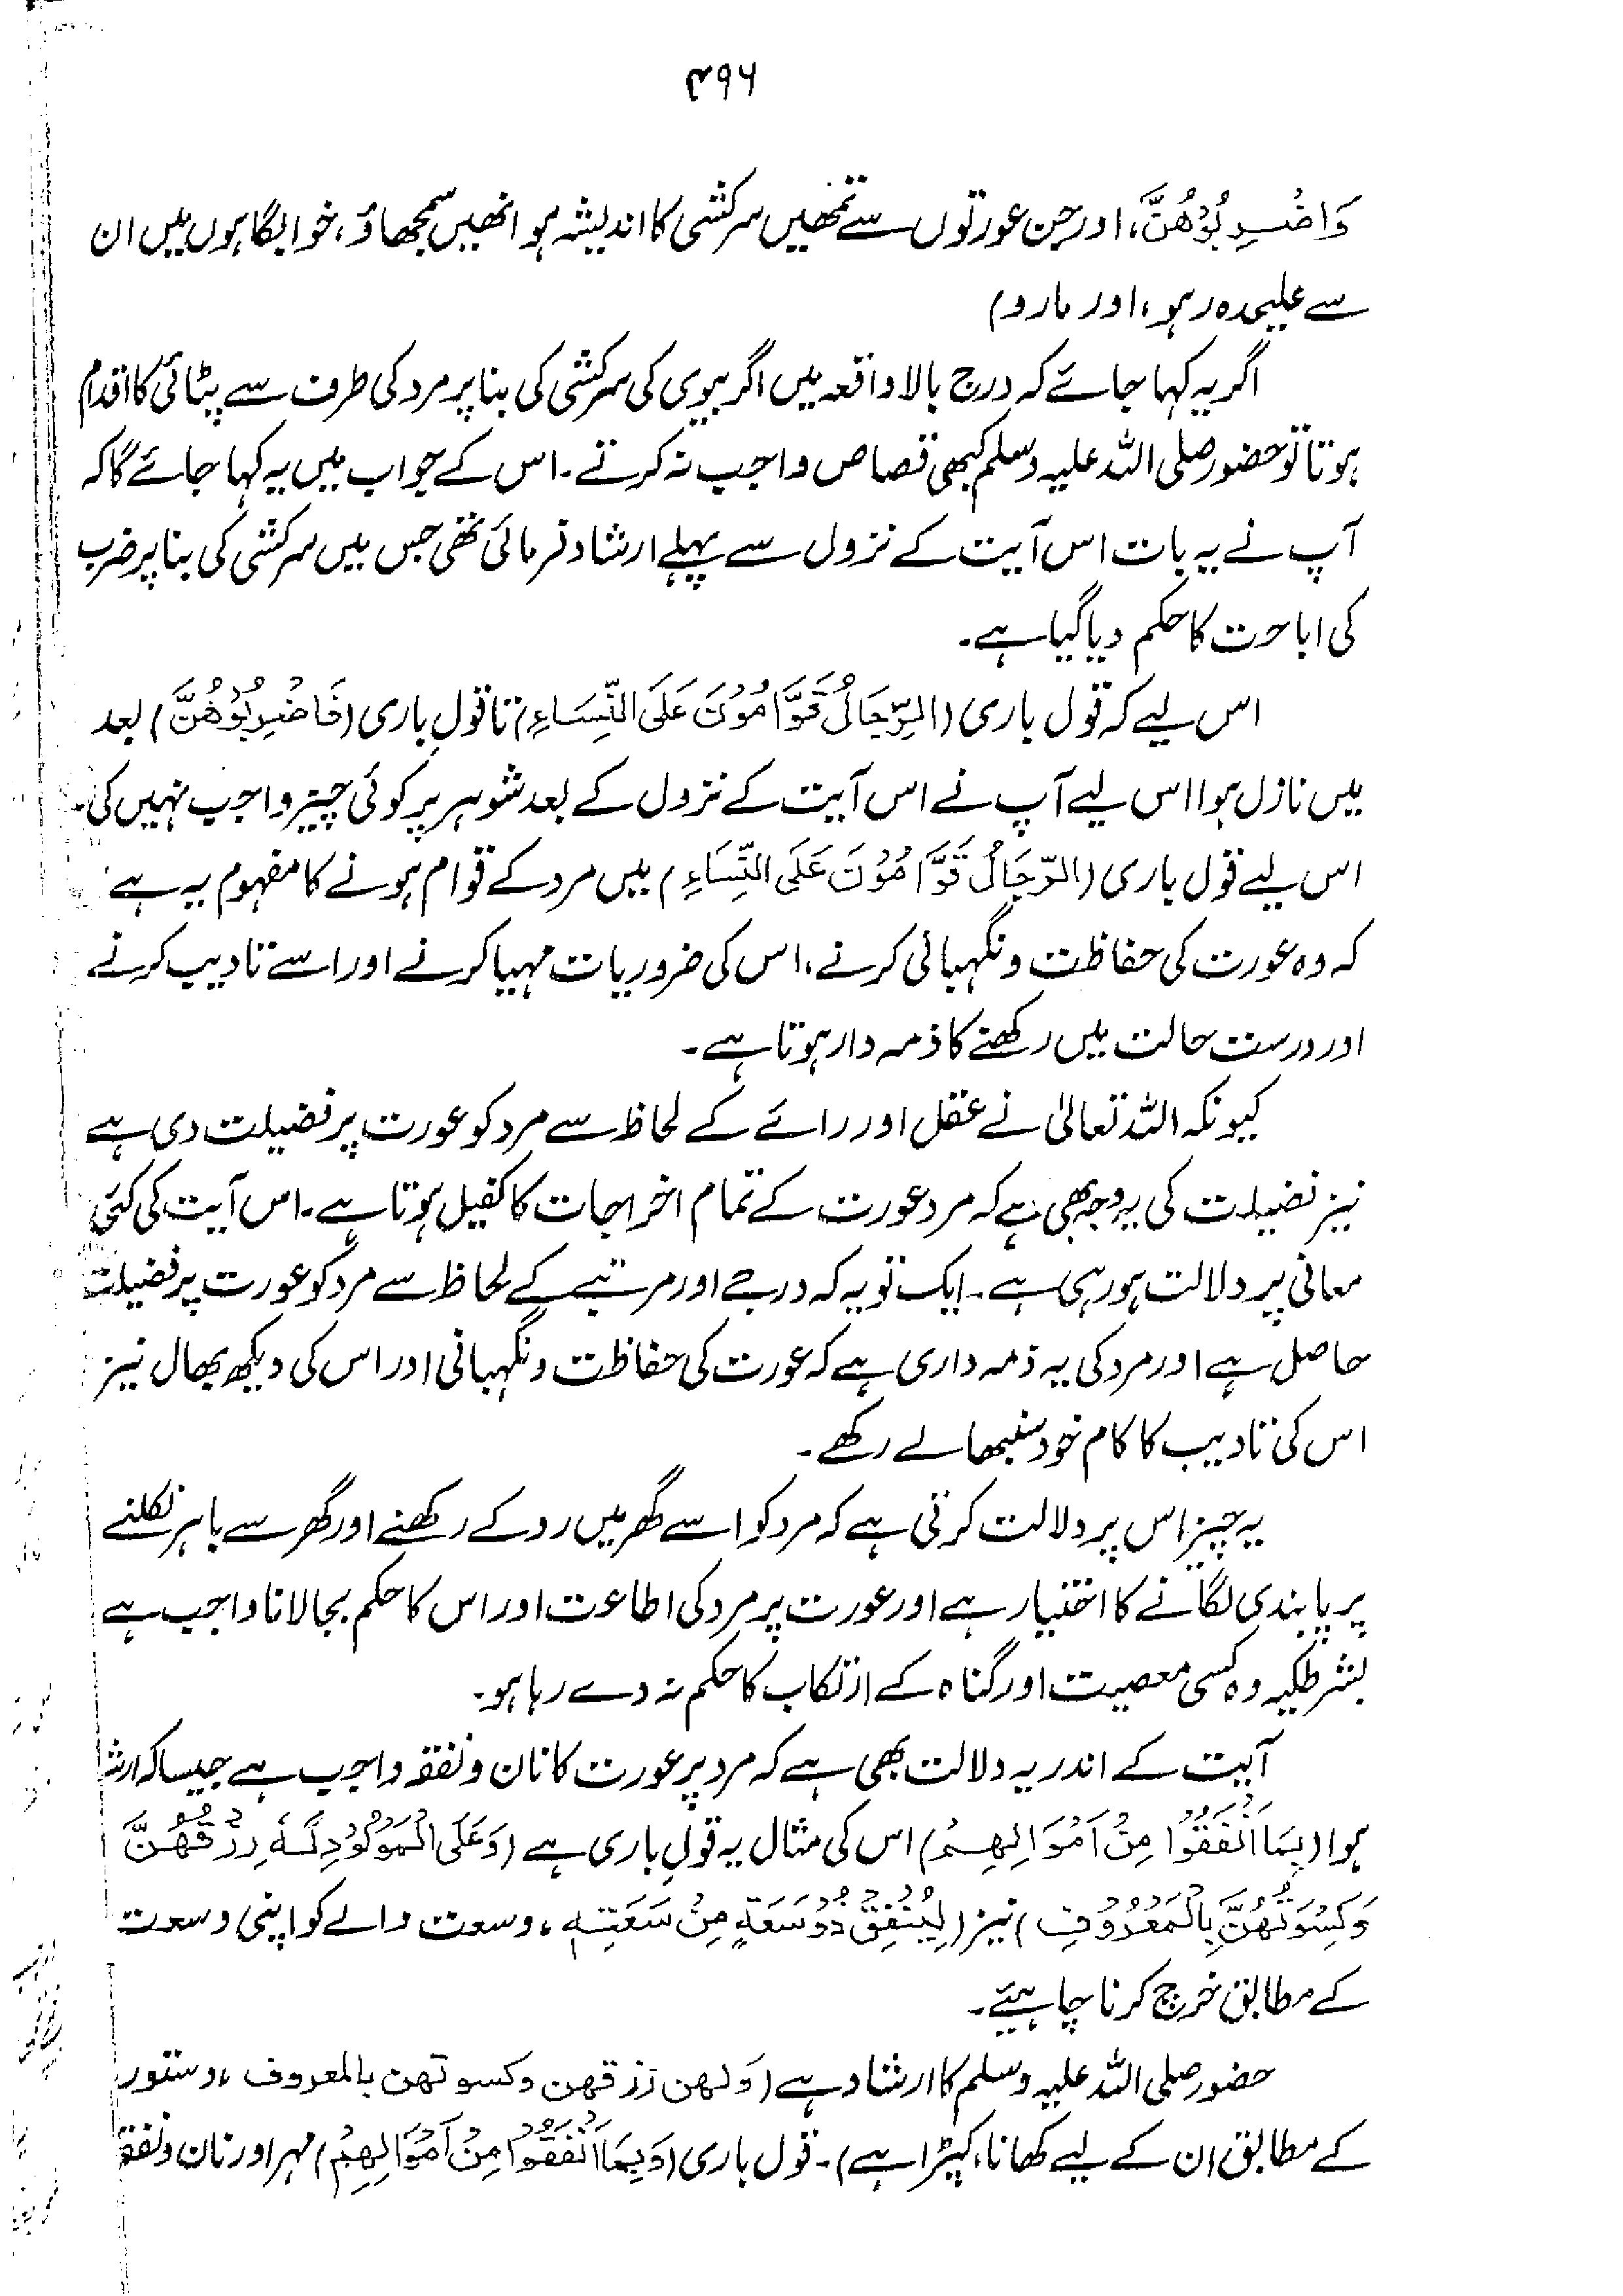 ۴۹۶
وَاضْرِبُوْهُنَّ، اور جن عورتوں سے تمھیں سرکشی کا اندیشہ ہو انھیں سمجھاؤ، خوابگاہوں میں ان
سے علیحدہ رہو، اور مارو)
اگر یہ کہا جائے کہ درج بالا واقعہ میں اگر بیوی کی سرکشی کی بنا پر مرد کی طرف سے پٹائی کا اقدام
ہوتا تو حضور صلی اللہ علیہ وسلم کبھی قصاص واجب نہ کرتے۔ اس کے جواب میں یہ کہا جائے گا کہ
آپ نے یہ بات اس آیت کے نزول سے پہلے ارشاد فرمائی تھی جس میں سرکشی کی بنا پر ضرب
کی اباحت کا حکم دیا گیا ہے۔
اس لیے کہ قول باری (اَلرِّجَالُ قَوَّامُوْنَ عَلَی النِّسَاءِ) تا قولِ باری (فَاضْرِبُوْهُنَّ) بعد
میں نازل ہوا اس لیے آپ نے اس آیت کے نزول کے بعد شوہر پر کوئی چیز واجب نہیں کی۔
اس لیے قول باری (اَلرِّجَالُ قَوَّامُوْنَ عَلَی النِّسَاءِ) میں مرد کے قوام ہونے کا مفہوم یہ ہے
کہ وہ عورت کی حفاظت و نگہبانی کرنے، اس کی ضروریات مہیا کرنے اور اسے تادیب کرنے
اور درست حالت میں رکھنے کا ذمہ دار ہوتا ہے۔
کیونکہ اللہ تعالیٰ نے عقل اور رائے کے لحاظ سے مرد کو عورت پر فضیلت دی ہے
نیز فضیلت کی یہ وجہ بھی ہے کہ مرد عورت کے تمام اخراجات کا کفیل ہوتا ہے۔ اس آیت کی کئی
معانی پر دلالت ہو رہی ہے۔ ایک تو یہ کہ درجے اور مرتبے کے لحاظ سے مرد کو عورت پر فضیلت
حاصل ہے اور مرد کی یہ ذمہ داری ہے کہ عورت کی حفاظت و نگہبانی اور اس کی دیکھ بھال نیز
اس کی تادیب کا کام خود سنبھالے رکھے۔
یہ چیز اس پر دلالت کرتی ہے کہ مرد کو اسے گھر میں روکے رکھنے اور گھر سے باہر نکلنے
پر پابندی لگانے کا اختیار ہے اور عورت پر مرد کی اطاعت اور اس کا حکم بجا لانا واجب ہے
بشرطیکہ وہ کسی معصیت اور گناہ کے ارتکاب کا حکم نہ دے رہا ہو۔
آیت کے اندر یہ دلالت بھی ہے کہ مرد پر عورت کا نان و نفقہ واجب ہے جیسا کہ ارشا
ہوا (بِمَا اَنْفَقُوْا مِنْ اَمْوَالِهِمْ) اس کی مثال یہ قولِ باری ہے (وَعَلَی الْمَوْلُوْدِ لَهٗ رِزْقُهُنَّ
وَكِسْوَتُهُنَّ بِالْمَعْرُوْفِ) نیز (لِیُنْفِقْ ذُوْسَعَةٍ مِنْ سَعَتِهٖ، وسعت والے کو اپنی وسعت
کے مطابق خرچ کرنا چاہیئے۔
حضور صلی اللہ علیہ وسلم کا ارشاد ہے (وَلهن رزقهن وکسوتهن بالمعروف، دستور
کے مطابق ان کے لیے کھانا، کپڑا ہے)۔ قول باری (وَبِمَا اَنْفَقُوْا مِنْ اَمْوَالِهِمْ) مہر اور نان و نفقہ